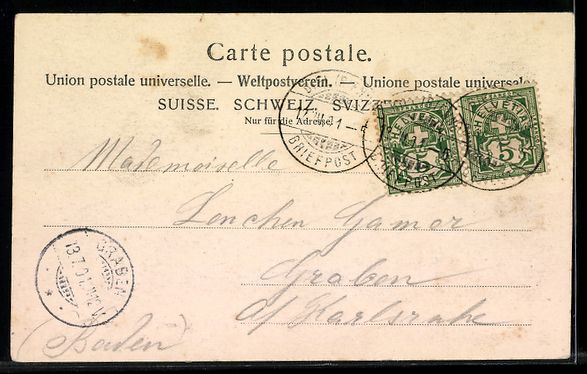 Carte postale.
Union postale universelle. — Weltpostverein. — Unione postale universale
SUISSE. SCHWEIZ. SVIZZ
Nur für die Adresse.
BRIEFPOST
HELVETIA
5
HELVETIA
5
Mademoiselle
Lenchen Gamer
Graben
a/ Karlsruhe
(Baden)
GRABEN
13.7.01